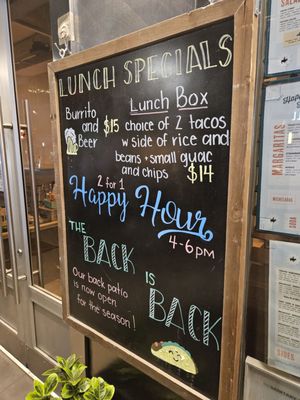 LUNCH SPECIALS
Burrito and Beer $15
Lunch Box
choice of 2 tacos
w side of rice and
beans + small guac
and chips $14
2 for 1
Happy Hour
4-6pm
THE
BACK
IS
BACK
Our back patio
is now open
for the season!
MARGARITAS